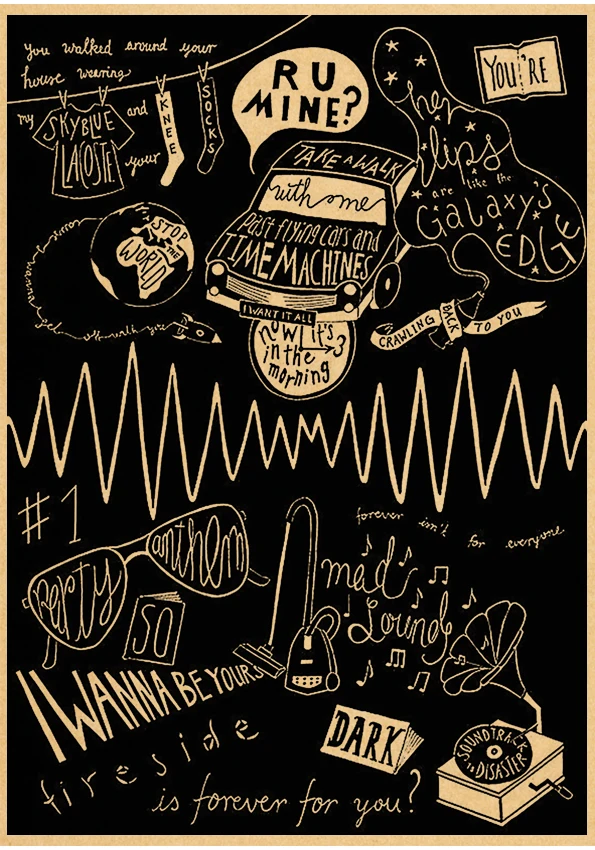 you walked around your
house wearing
my
SKYBLUE
LACOSTE
and
your
KNEE
SOCKS
R U
MINE?
TAKE A WALK
with me
Past flying cars and
TIME MACHINES
I WANT IT ALL
NOW!
it's 3
in the
morning
her
lips
are like the
Galaxy's
EDGE
YOU'RE
SO
DARK
STOP
THE
WORLD
cause I wanna
get off with you
CRAWLING
BACK
TO YOU
#1
party
anthem
forever isn't for everyone
mad
Sounds
I WANNA BE YOURS
fireside
is forever for you?
SOUNDTRACK
TO DISASTER